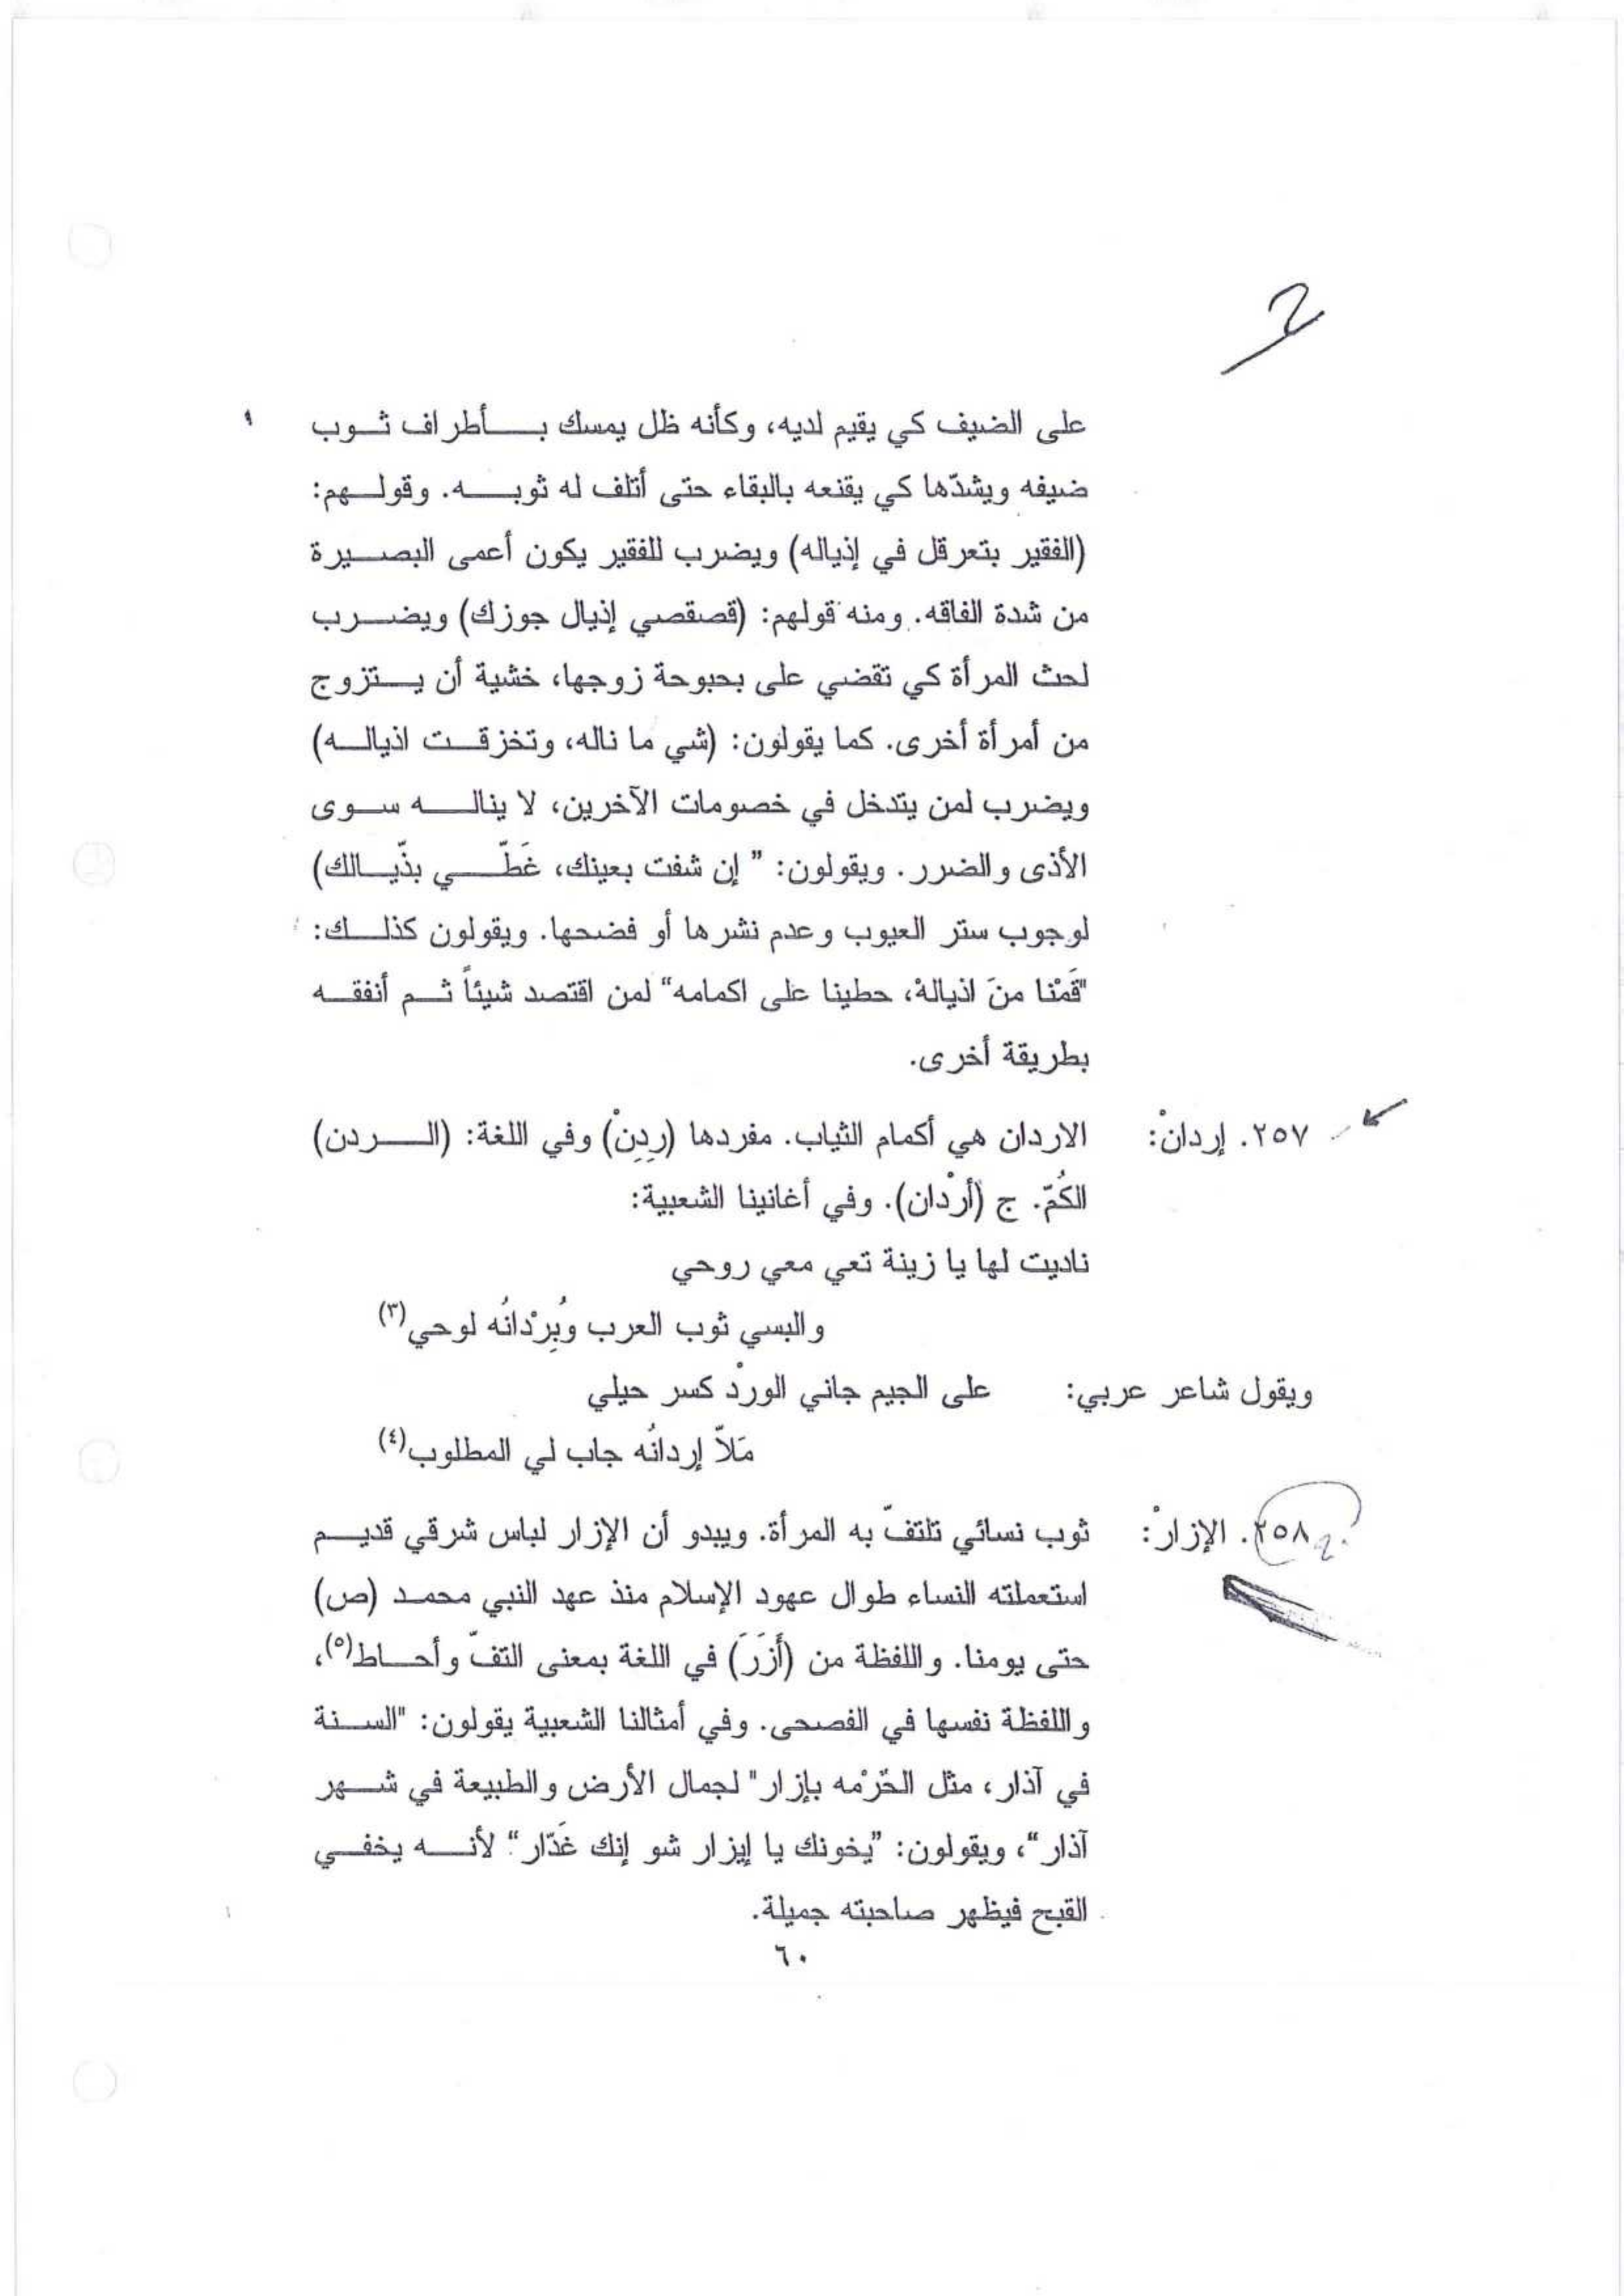 2
على الضيف كي يقيم لديه، وكأنه ظل يمسك بأطراف ثوب
ضيفه ويشدّها كي يقنعه بالبقاء حتى أتلف له ثوبه. وقولهم:
(الفقير بتعرقل في إذياله) ويضرب للفقير يكون أعمى البصيرة
من شدة الفاقه. ومنه قولهم: (قصقصي إذيال جوزك) ويضرب
لحث المرأة كي تقضي على بحبوحة زوجها، خشية أن يتزوج
من أمرأة أخرى. كما يقولون: (شي ما ناله، وتخزقت اذياله)
ويضرب لمن يتدخل في خصومات الآخرين، لا يناله سوى
الأذى والضرر. ويقولون: " إن شفت بعينك، غَطّي بذّيالك)
لوجوب ستر العيوب وعدم نشرها أو فضحها. ويقولون كذلك:
"قَمْنا منَ اذيالهْ، حطينا على اكمامه" لمن اقتصد شيئاً ثم أنفقه
بطريقة أخرى.
٢٥٧. إردانْ: الاردان هي أكمام الثياب. مفردها (ردِنْ) وفي اللغة: (الردن)
الكُمّ. ج (أرْدان). وفي أغانينا الشعبية:
ناديت لها يا زينة تعي معي روحي
والبسي ثوب العرب وُبِرْدانُه لوحي(٣)
ويقول شاعر عربي: على الجيم جاني الورْد كسر حيلي
مَلاّ إردانُه جاب لي المطلوب(٤)
٢٥٨. الإزارْ: ثوب نسائي تلتفّ به المرأة. ويبدو أن الإزار لباس شرقي قديم
استعملته النساء طوال عهود الإسلام منذ عهد النبي محمد (ص)
حتى يومنا. واللفظة من (أَزَرَ) في اللغة بمعنى التفّ وأحاط(٥)،
واللفظة نفسها في الفصحى. وفي أمثالنا الشعبية يقولون: "السنة
في آذار، مثل الحّرْمه بإزار" لجمال الأرض والطبيعة في شهر
آذار"، ويقولون: "يخونك يا إيزار شو إنك غَدّار" لأنه يخفي
القبح فيظهر صاحبته جميلة.
٦٠